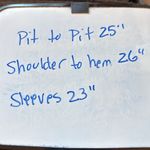 Pit to Pit 25"
Shoulder to hem 26"
Sleeves 23"